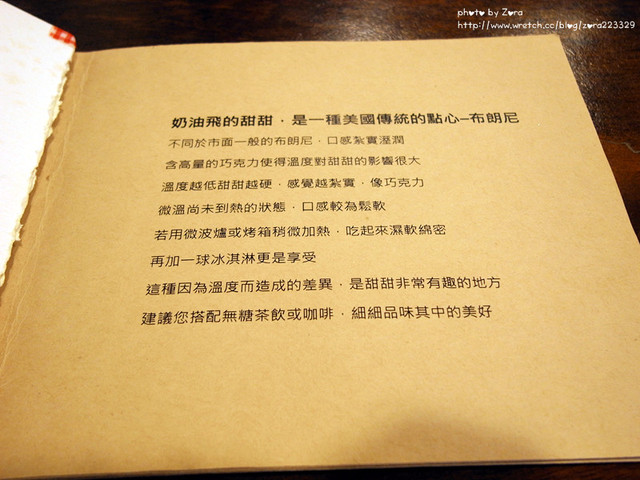 photo by Zora
http://www.wretch.cc/blog/zora223329
奶油飛的甜甜．是一種美國傳統的點心–布朗尼
不同於市面一般的布朗尼．口感紮實溼潤
含高量的巧克力使得溫度對甜甜的影響很大
溫度越低甜甜越硬．感覺越紮實．像巧克力
微溫尚未到熱的狀態．口感較為鬆軟
若用微波爐或烤箱稍微加熱．吃起來濕軟綿密
再加一球冰淇淋更是享受
這種因為溫度而造成的差異．是甜甜非常有趣的地方
建議您搭配無糖茶飲或咖啡．細細品味其中的美好